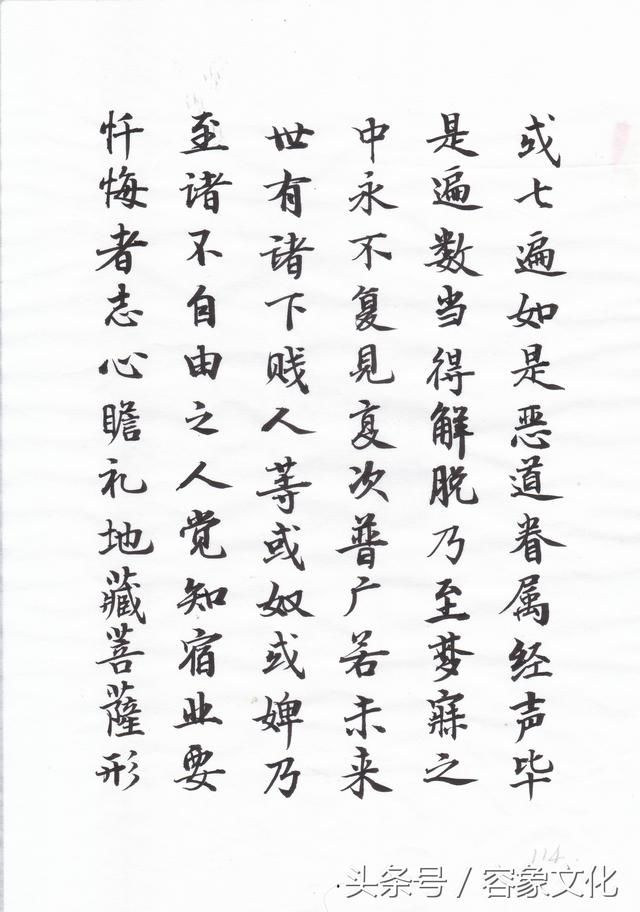 或七遍如是恶道眷属经声毕
是遍数当得解脱乃至梦寐之
中永不复见复次普广若未来
世有诸下贱人等或奴或婢乃
至诸不自由之人觉知宿业要
忏悔者志心瞻礼地藏菩萨形
114
头条号 / 容象文化